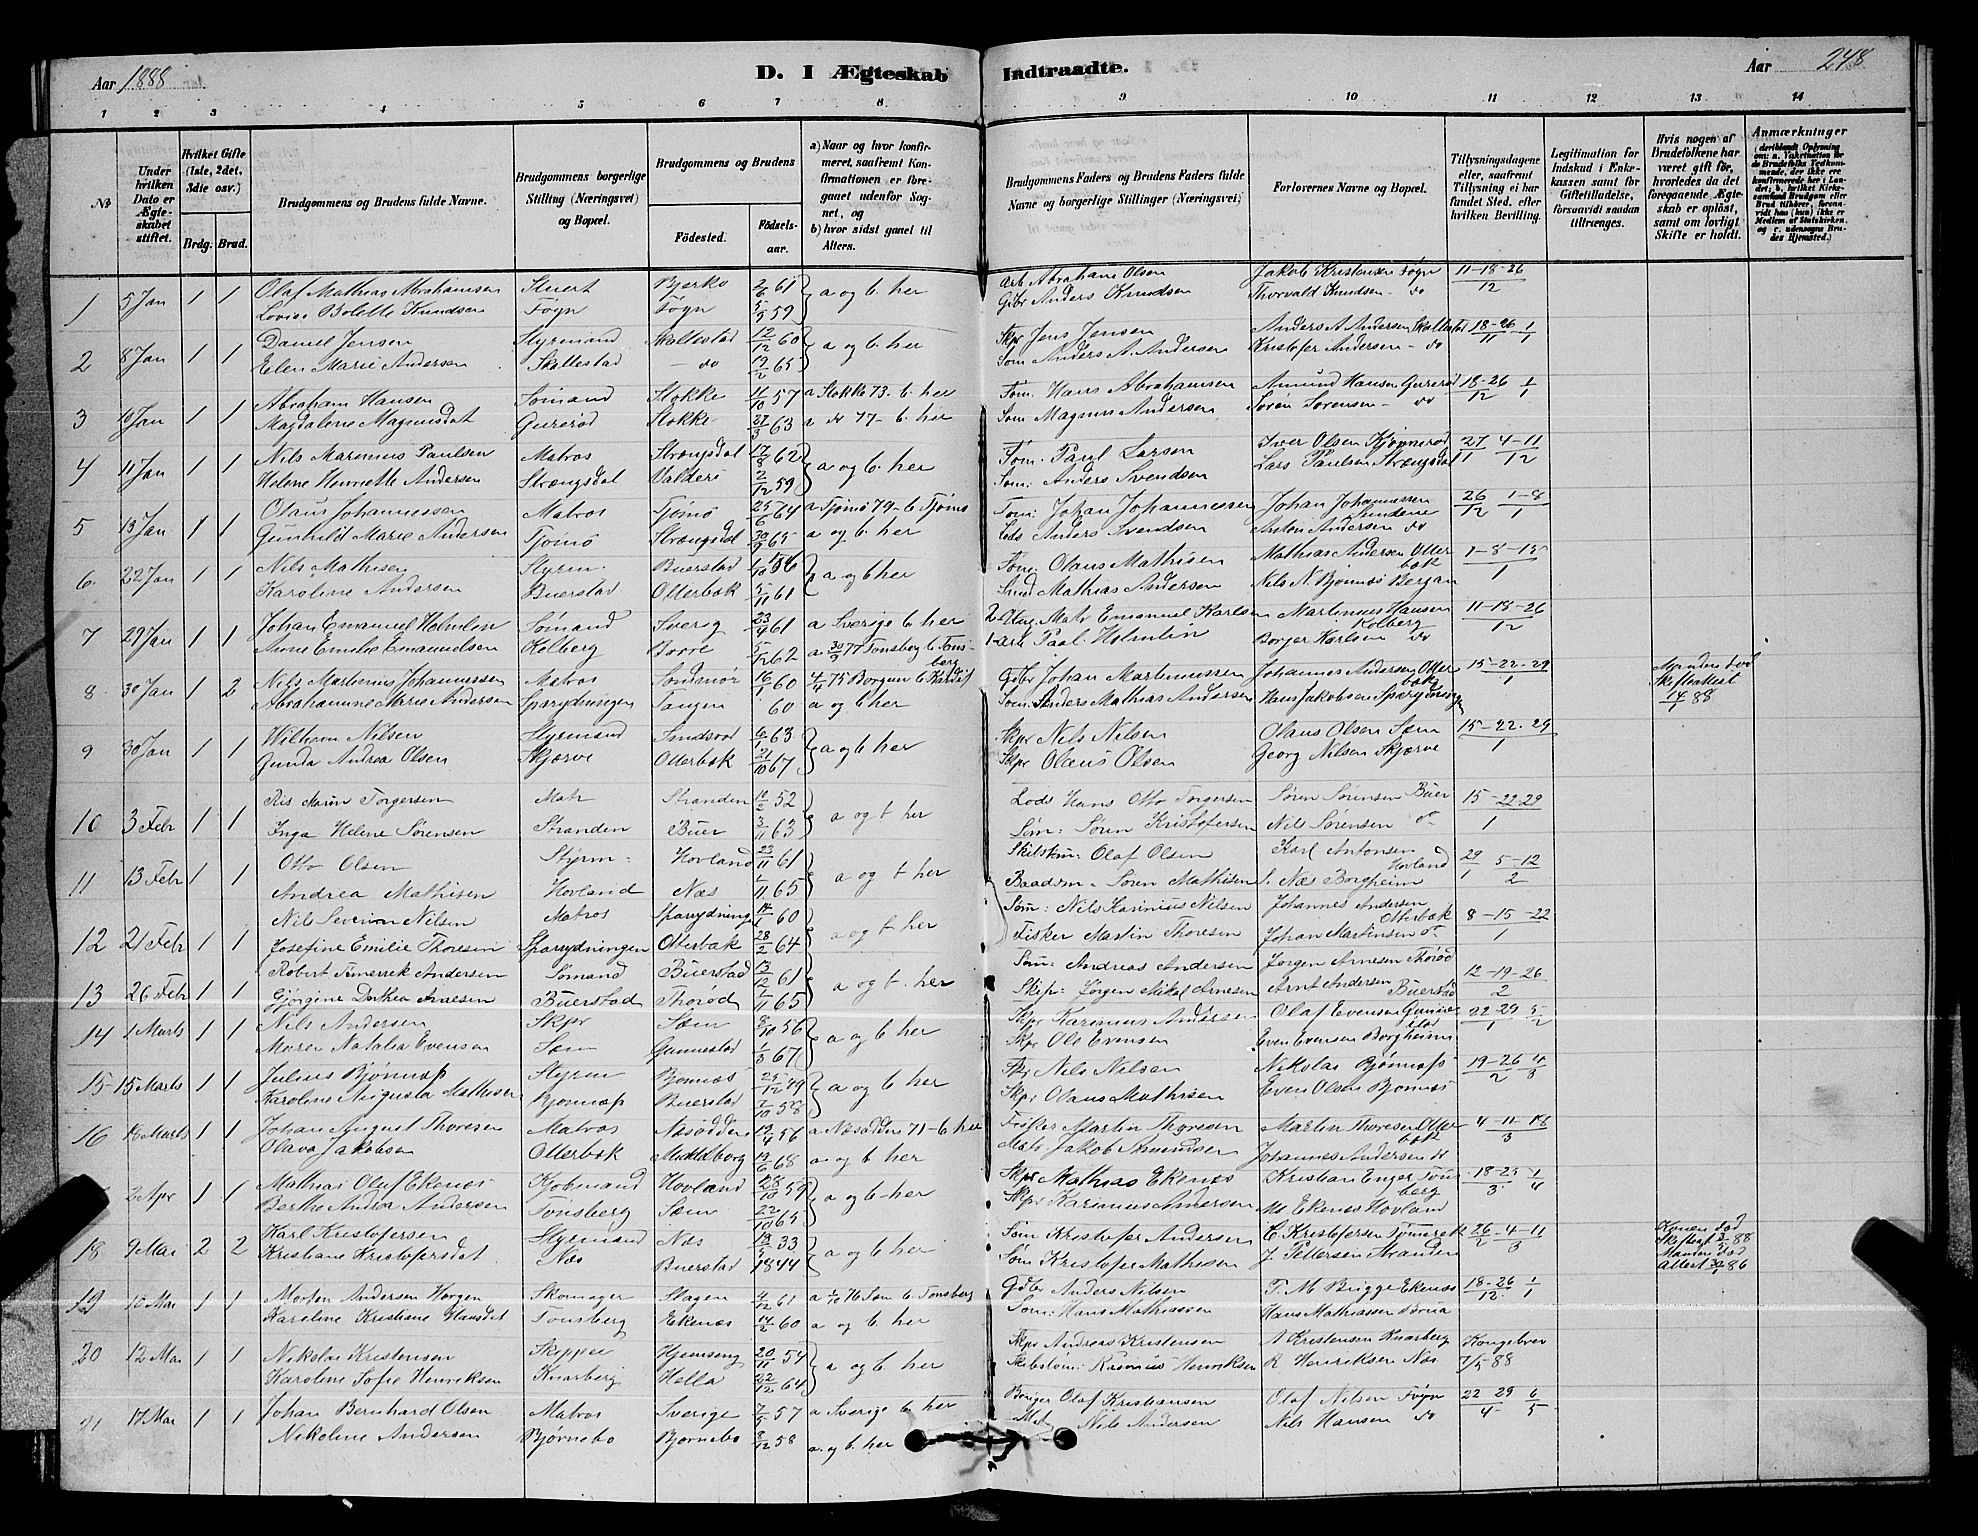 Aar 1888
D. I Ægteskab Indtraadte.
Aar 248
1 2 3 4 5 6 7 8 9 10 11 12 13 14
No
Under hvilken Dato er Ægteskabet stiftet.
Hvilket Gifte (1ste, 2det, 3die osv.)
Brdg. Brud.
Brudgommens og Brudens fulde Navne.
Brudgommens borgerlige Stilling (Næringsvei) og Bopæl.
Brudgommens og Brudens
Fødested. Fødselsaar.
a) Naar og hvor konfirmeret, saafremt Konfirmationen er foregaaet udenfor Sognet, og
b) hvor sidst gaaet til Alters.
Brudgommens Faders og Brudens Faders fulde Navne og borgerlige Stillinger (Næringsvei)
Forlovernes Navne og Bopæl.
Tillysningsdagene eller, saafremt Tillysning ei har fundet Sted, efter hvilken Bevilling.
Legitimation for Indskud i Enkekassen samt for Giftetilladelse, forsaavidt saadan tiltrænges.
Hvis nogen af Brudefolkene har været gift før, hvorledes da det foregaaende Ægteskab er opløst, samt om lovligt Skifte er holdt.
Anmærkninger
1 5 Jan 1 1 Olaf Mathias Abrahamsen Stuert Bjerkø 2/6 61 a og b. her Arb Abraham Olsen Jakob Kristensen Føgn 11-18-26/12
Lovise Bolette Knudsen Føgn Føgn 5/9 59 Gbr Anders Knudsen Thorvald Knudsen - do
2 8 Jan 1 1 Daniel Jensen Styrmand Skallestad 12/12 60 a og b. her Skpr Jens Jensen Anders A Andersen Skallestad 18-26/11 1/1
Elen Marie Andersen Skallestad - do 19/2 65 Søm Anders A. Andersen Kristofer Andersen - do
3 10 Jan 1 1 Abraham Hansen Sømand Stokke 4/10 57 a Stokke 73. b. her Søm. Hans Abrahamsen Amund Hansen Gurerød 18-26/12 1/1
Magdalene Magnusdat Gurerød Stokke 27/3 63 a do 77 - b. her Søm Magnus Andersen Søren Sørensen - do
4 11 Jan 1 1 Nils Marinius Paulsen Matros Strængsdal 17/8 62 a og b. her Søm. Paul Larsen Iver Olsen Kjøpnerød 27/11 4-11/12
Helene Henriette Andersen Strængsdal Valders 2/12 59 Søm: Anders Svendsen Lars Paulsen Strængsdal
5 13 Jan 1 1 Olaus Johannessen Matros Tjømø 25/6 64 a Tjømø 79- b Tjømø Søm: Johan Johannessen Johan Johannessen Sundene 26/12 1-8/1
Gunhild Marie Andersen Tjømø Strængsdal 30/9 65 a og b. her Lods Anders Svendsen Anton Andersen do
6. 22 Jan 1 1 Nils Mathisen Styrm. Buerstad 4/10 56 a og b her Søm: Olaus Mathisen Mathias Andersen Otterbæk 1-8-15/1
Karoline Andersen Buerstad Otterbæk 5/11 61 Smed Mathias Andersen Nils N. Bjønnes Bergan
7 29 Jan 1 1 Johan Emanuel Holmlin Sømand Sverig 23/4 61 a Sverige b her 2. Mats Emanuel Karlsen Martinius Hansen Kolberg 11-18-26/12
Anne Emilie Emanuelsen Kolberg Borre 5/12 62 a 30/9 77 Tønsberg b Tønsberg 1 Arb Paal Holmlin Borger Karlsen do
8 30 Jan 1 2 Nils Martinius Johannessen Matros Søndmør 16/1 60 4/4 75 Borgun b Kardif Gbr Johan Martinussen Johannes Andersen Otterbæk 15-22-29/1 Manden død Skifteattest 14/1 88
Abrahamine Marie Andersen Sparrydningen Tangen 60 a og b her Søm: Anders Mathias Andersen Hans Jakobsen Sparrydning
9 30 Jan 1 1 Wilhelm Nilsen Styrmand Sundsrød 6/1 63 a og b her Skpr Nils Nilsen Olaus Olsen Sæm 15-22-29/1
Gunda Andrea Olsen Skjærve Otterbæk 21/10 67 Skpr Olaus Olsen Georg Nilsen Skjærve
10 3 Febr 1 1 Ris Marin Torgersen Matr Stranden 10/2 52 a og b her Lods Hans Otto Torgersen Søren Sørensen Buer 15-22-29/1
Inga Helene Sørensen Stranden Buer 3/11 63 Søm: Søren Kristofersen Nils Sørensen do
11 13 Febr 1 1 Otto Olsen Styrm: Hovland 23/11 61 a og b her Skibstøm: Olaf Olsen Karl Antonsen Hovland 29/1 5-12/2
Andrea Mathisen Hovland Næs 1/11 65 Baadsm. Søren Mathisen S. Næs Borgheim
12 21 Febr 1 1 Nils Severin Nilsen Matros Sparrydningen 14/1 60 a og b her Søm: Nils Karinius Nilsen Johannes Andersen Otterbæk 8-15-22/1
Josefine Emilie Thoresen Sparrydningen Otterbæk 28/2 64 Fisker Martin Thoresen Johan Martinsen do
13 26 Febr 1 1 Robert Andersen Sømand Buerstad 13/12 61 a og b. her Søm: Andreas Andersen Jørgen Arnesen Thorød 12-19-26/2
Gjørgine Dorthea Arnesen Buerstad Thorød 1/11 65 Skip: Jørgen Mikal Arnesen Arnt Andersen Buerstad
14 1 Marts 1 1 Nils Andersen Skpr Sæm 8/10 56 a og b her Skpr Karinius Andersen Olaf Evensen Gunnestad 22 29/1 5/2
Maren Natalia Evensen Sæm Gunnestad 1/3 67 Skpr Ole Evensen Even Evensen Borgheim
15 15 Marts 1 1 Julius Bjønnæs Styrm Bjønnæs 25/12 49 a og b her Skr Nils Nilsen Nikolas Bjønnæs 19-26/2 4/3
Karoline Augusta Mathisen Bjønnæs Buerstad 7/10 58 Skpr Olaus Mathisen Even Olsen Bjønnæs
16 18 Marts 1 1 Johan August Thoresen Matros Næsodden 12/4 56 a Næsodden 71 - b. her Fisker Martin Thoresen Martin Thoresen Otterbæk 4-11-18/3
Olava Jakobsen Otterbæk Middelborg 19/6 68 a. og b her Mats Jakob Amundsen Johannes Andersen do
2 Apr 1 1 Mathias Olaf Ekenæs Kjøbmand Hovland 28/10 59 a og b her Skpr Mathias Ekenæs Kristian Enger Tønsberg 18-25/3 1/4
Berthe Andrea Andersen Tønsberg Sæm 22/10 65 Skpr Karinius Andersen M Ekenæs Hovland
18 9 Mai 2 2 Karl Kristofersen Styrmand Næs 19/5 33 a og b her Søm Kristofer Andersen C Kristofersen 26/2 4-11/3 Konen død Skifteat 2/5 88
Kristiane Kristofersdat Næs Buerstad 1844 Søm Kristofer Mathisen J Pettersen Stranden Manden død Attest 86
19 10 Mai 1 1 Morten Andersen Horgen Skomager Slagen 4/12 61 a 1/10 76 Sem b. Tønsberg Gdbr Anders Nilsen T. M Brigge Ekenæs 18-26/12 1/1
Kareline Kristiane Hansdat Tønsberg Ekenæs 14/2 60 a og b. her Søm: Hans Mathiassen Hans Mathiassen
20 12 Mai 1 1 Nikolai Kristensen Skipper Hjemseng 20/11 54 a og b her Skpr Andreas Kristensen A Kristensen Knarberg Kongebrev 7/5 88
Karoline Sofie Henriksen Knarberg Hella 22/12 64 Skibstøm: Rasmus Henriksen R Henriksen Næs
21 17 Mai 1 1 Johan Bernhard Olsen Matros Sverige 7/5 57 a Sverige b her Borger Olaf Kristiansen Olaf Nilsen Føyn 22 29/4 6/5
Nikoline Andersen Bjørnebo Bjørnebo 8/12 58 a. og b. her Mat Nils Andersen Nils Hansen do